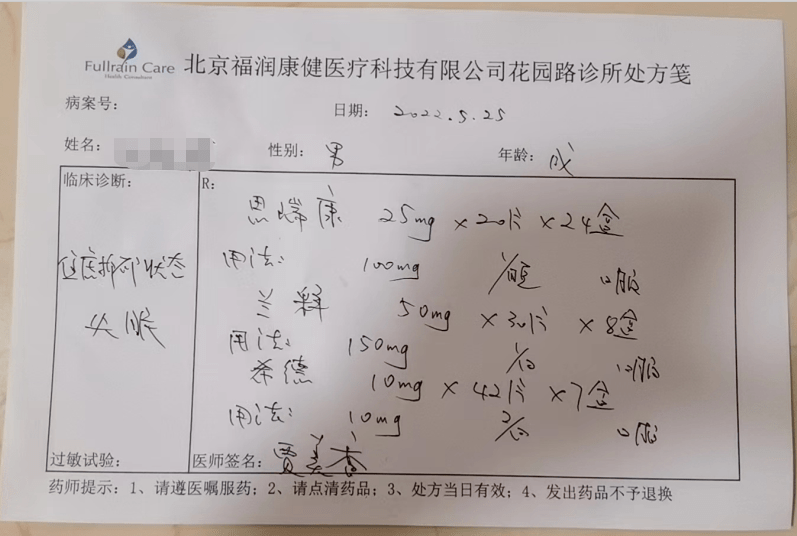 Fullrain Care 北京福润康健医疗科技有限公司花园路诊所处方笺
Health Consultant
病案号： 日期： 2022.5.25
姓名： 性别： 男 年龄： 成
临床诊断： R:
焦虑抑郁状态
失眠
思瑞康 25mg × 20片 × 24盒
用法： 100mg 1/晚 口服
兰释 50mg × 30片 × 8盒
用法： 150mg 1/日 口服
希德 10mg × 42片 × 7盒
用法： 10mg 2/日 口服
过敏试验： 医师签名： 贾美香
药师提示：1、请遵医嘱服药；2、请点清药品；3、处方当日有效；4、发出药品不予退换